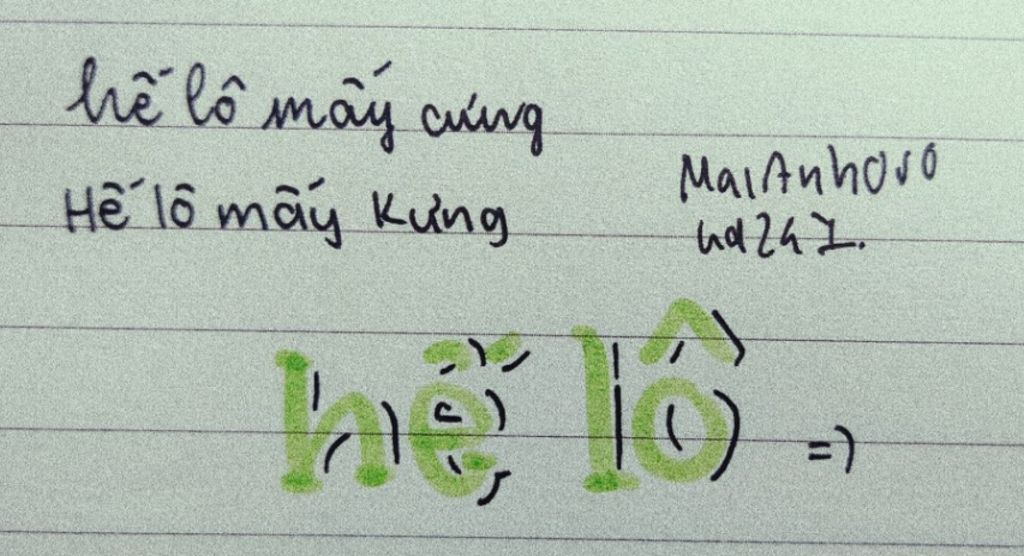 hế lô mấy cưng
Hế lô mấy Kưng
MaiAnhOrO
hd247.
hế lô =)